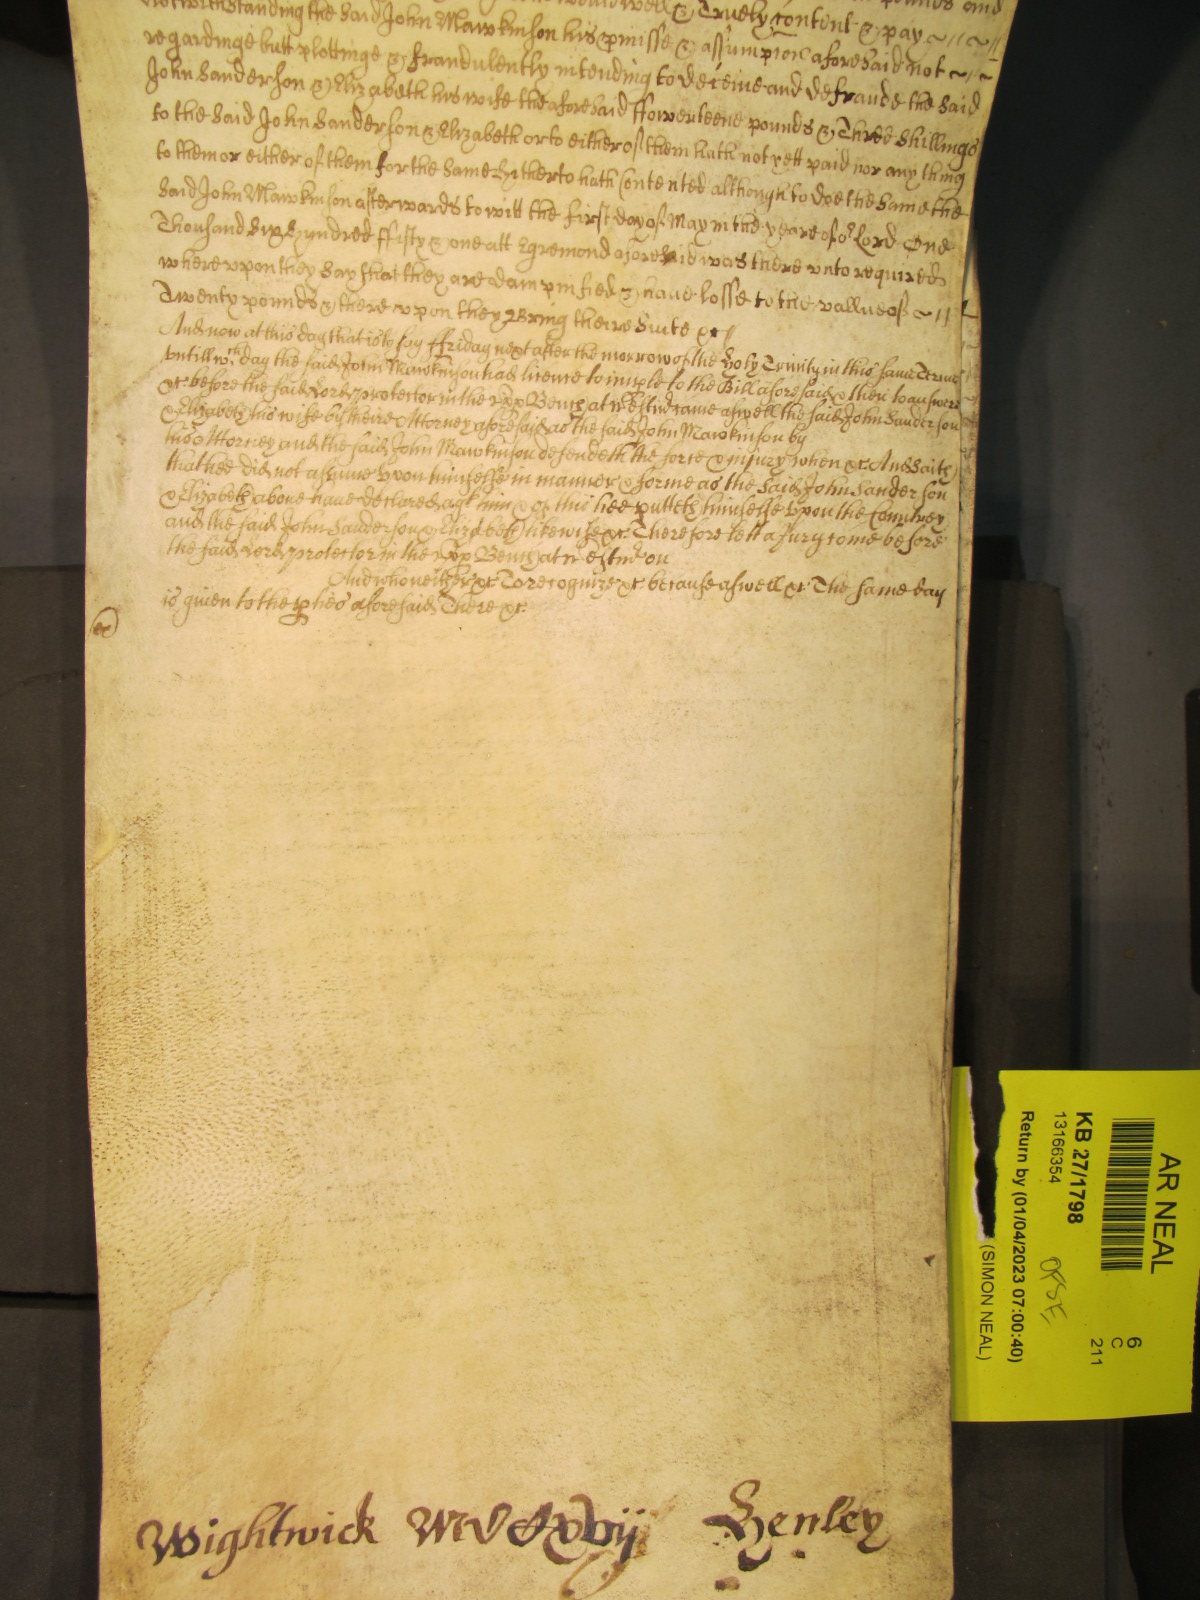 would well & Truely content & pay
notwithstanding the said John Mawkinson his pmisse & assumpcon aforesaid not
regardinge butt plottinge & fraudulently intending to deceive and defraude the said
John Sanderson & Elizabeth his wife the aforesaid ffowerteene pounds & Three shillings
to the said John Sanderson & Elizabeth or to either of them hath not yett paid nor any thing
to them or either of them for the same hitherto hath Contented although to doe the same the
said John Mawkinson afterwards to witt the first day of May in the yeare of or Lord One
Thousand Six Hundred ffifty & one att Egremond aforesaid was there vnto required
where vpon they say that they are dampnified & haue losse to the vallue of
Twenty pounds & there vpon they Bring theire Suite &c
And now at this day that is to say ffriday next after the morrow of the Holy Trinity in this same Terme
vntill wch day the said John Mawkinson had licence to imple to the Bill aforesaid & then to answere
&c before the said Lord Protector in the vpp Bench at Westm came aswell the said John Sanderson
& Elizabeth his wife by theire Attorney aforesaid as the said John Mawkinson by
his Attorney and the said John Mawkinson defendeth the force & iniury when &c And saith
that hee did not assume vpon himselfe in manner & forme as the said John Sanderson
& Elizabeth aboue haue declared agt him & of this hee putteth himselfe vpon the Countrey
and the said John Sanderson & Elizabeth likewise &c Therefore lett a Jury come before
the said Lord Protector in the vpp Bench at Westm on
And who neither &c To recognize &c because aswell &c The same day
is giuen to the pties aforesaid There &c
Wightwick Henley
AR NEAL
6
C
211
KB 27/1798
13166354
Return by (01/04/2023 07:00:40)
(SIMON NEAL)